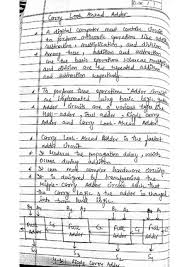 Carry Look Ahead Adder
A digital computer must contain circuits
to perform arithmetic operations like addition,
subtraction, multiplication, and division
Among these, addition and subtraction
are the basic operations whereas multiplication
and division are the repeated addition
and subtraction respectively.
To perform these operations 'Adder circuits'
are implemented using basic logic gates.
Adder circuits are of various types like
Half-adder, Full Adder, Ripple Carry
Adder and Carry Look-Ahead Adder
Carry Look-Ahead Adder is the fastest
adder circuit
It reduces the propagation delay, which
occurs during addition
It uses more complex hardware circuitry
It is designed by transforming the
Ripple-Carry Adder circuit such that
the Carry logic of the adder is changed
into two-level logic
Full
Adder
Full
Adder
Full
Adder
4-bit Ripple Carry Adder